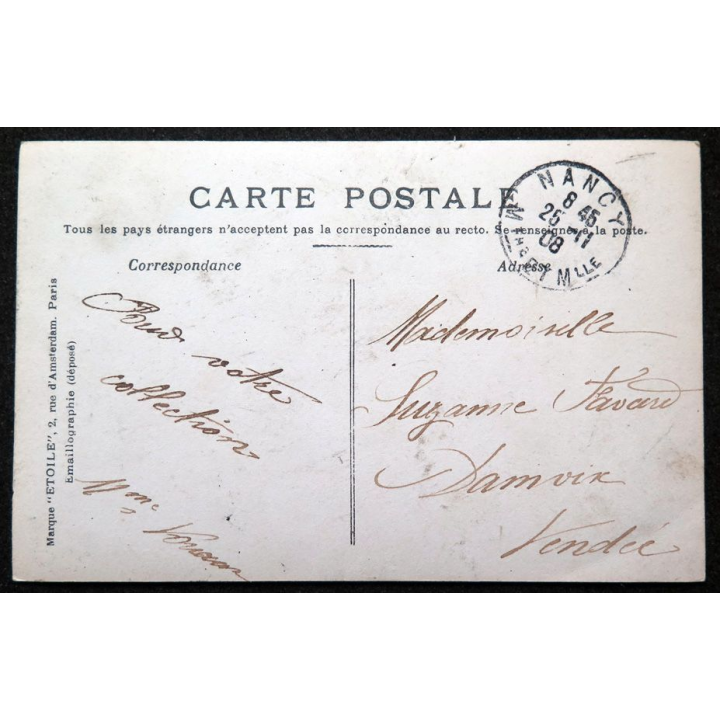 CARTE POSTALE
Tous les pays étrangers n'acceptent pas la correspondance au recto. Se renseigner à la poste.
NANCY
8 45
25 -11
08
MTHE ET MLLE
Correspondance
Pour votre
collection
Mme
Adresse
Mademoiselle
Suzanne Favard
Damvix
Vendée
Marque "ETOILE", 2, rue d'Amsterdam. Paris
Emaillographie (déposé)